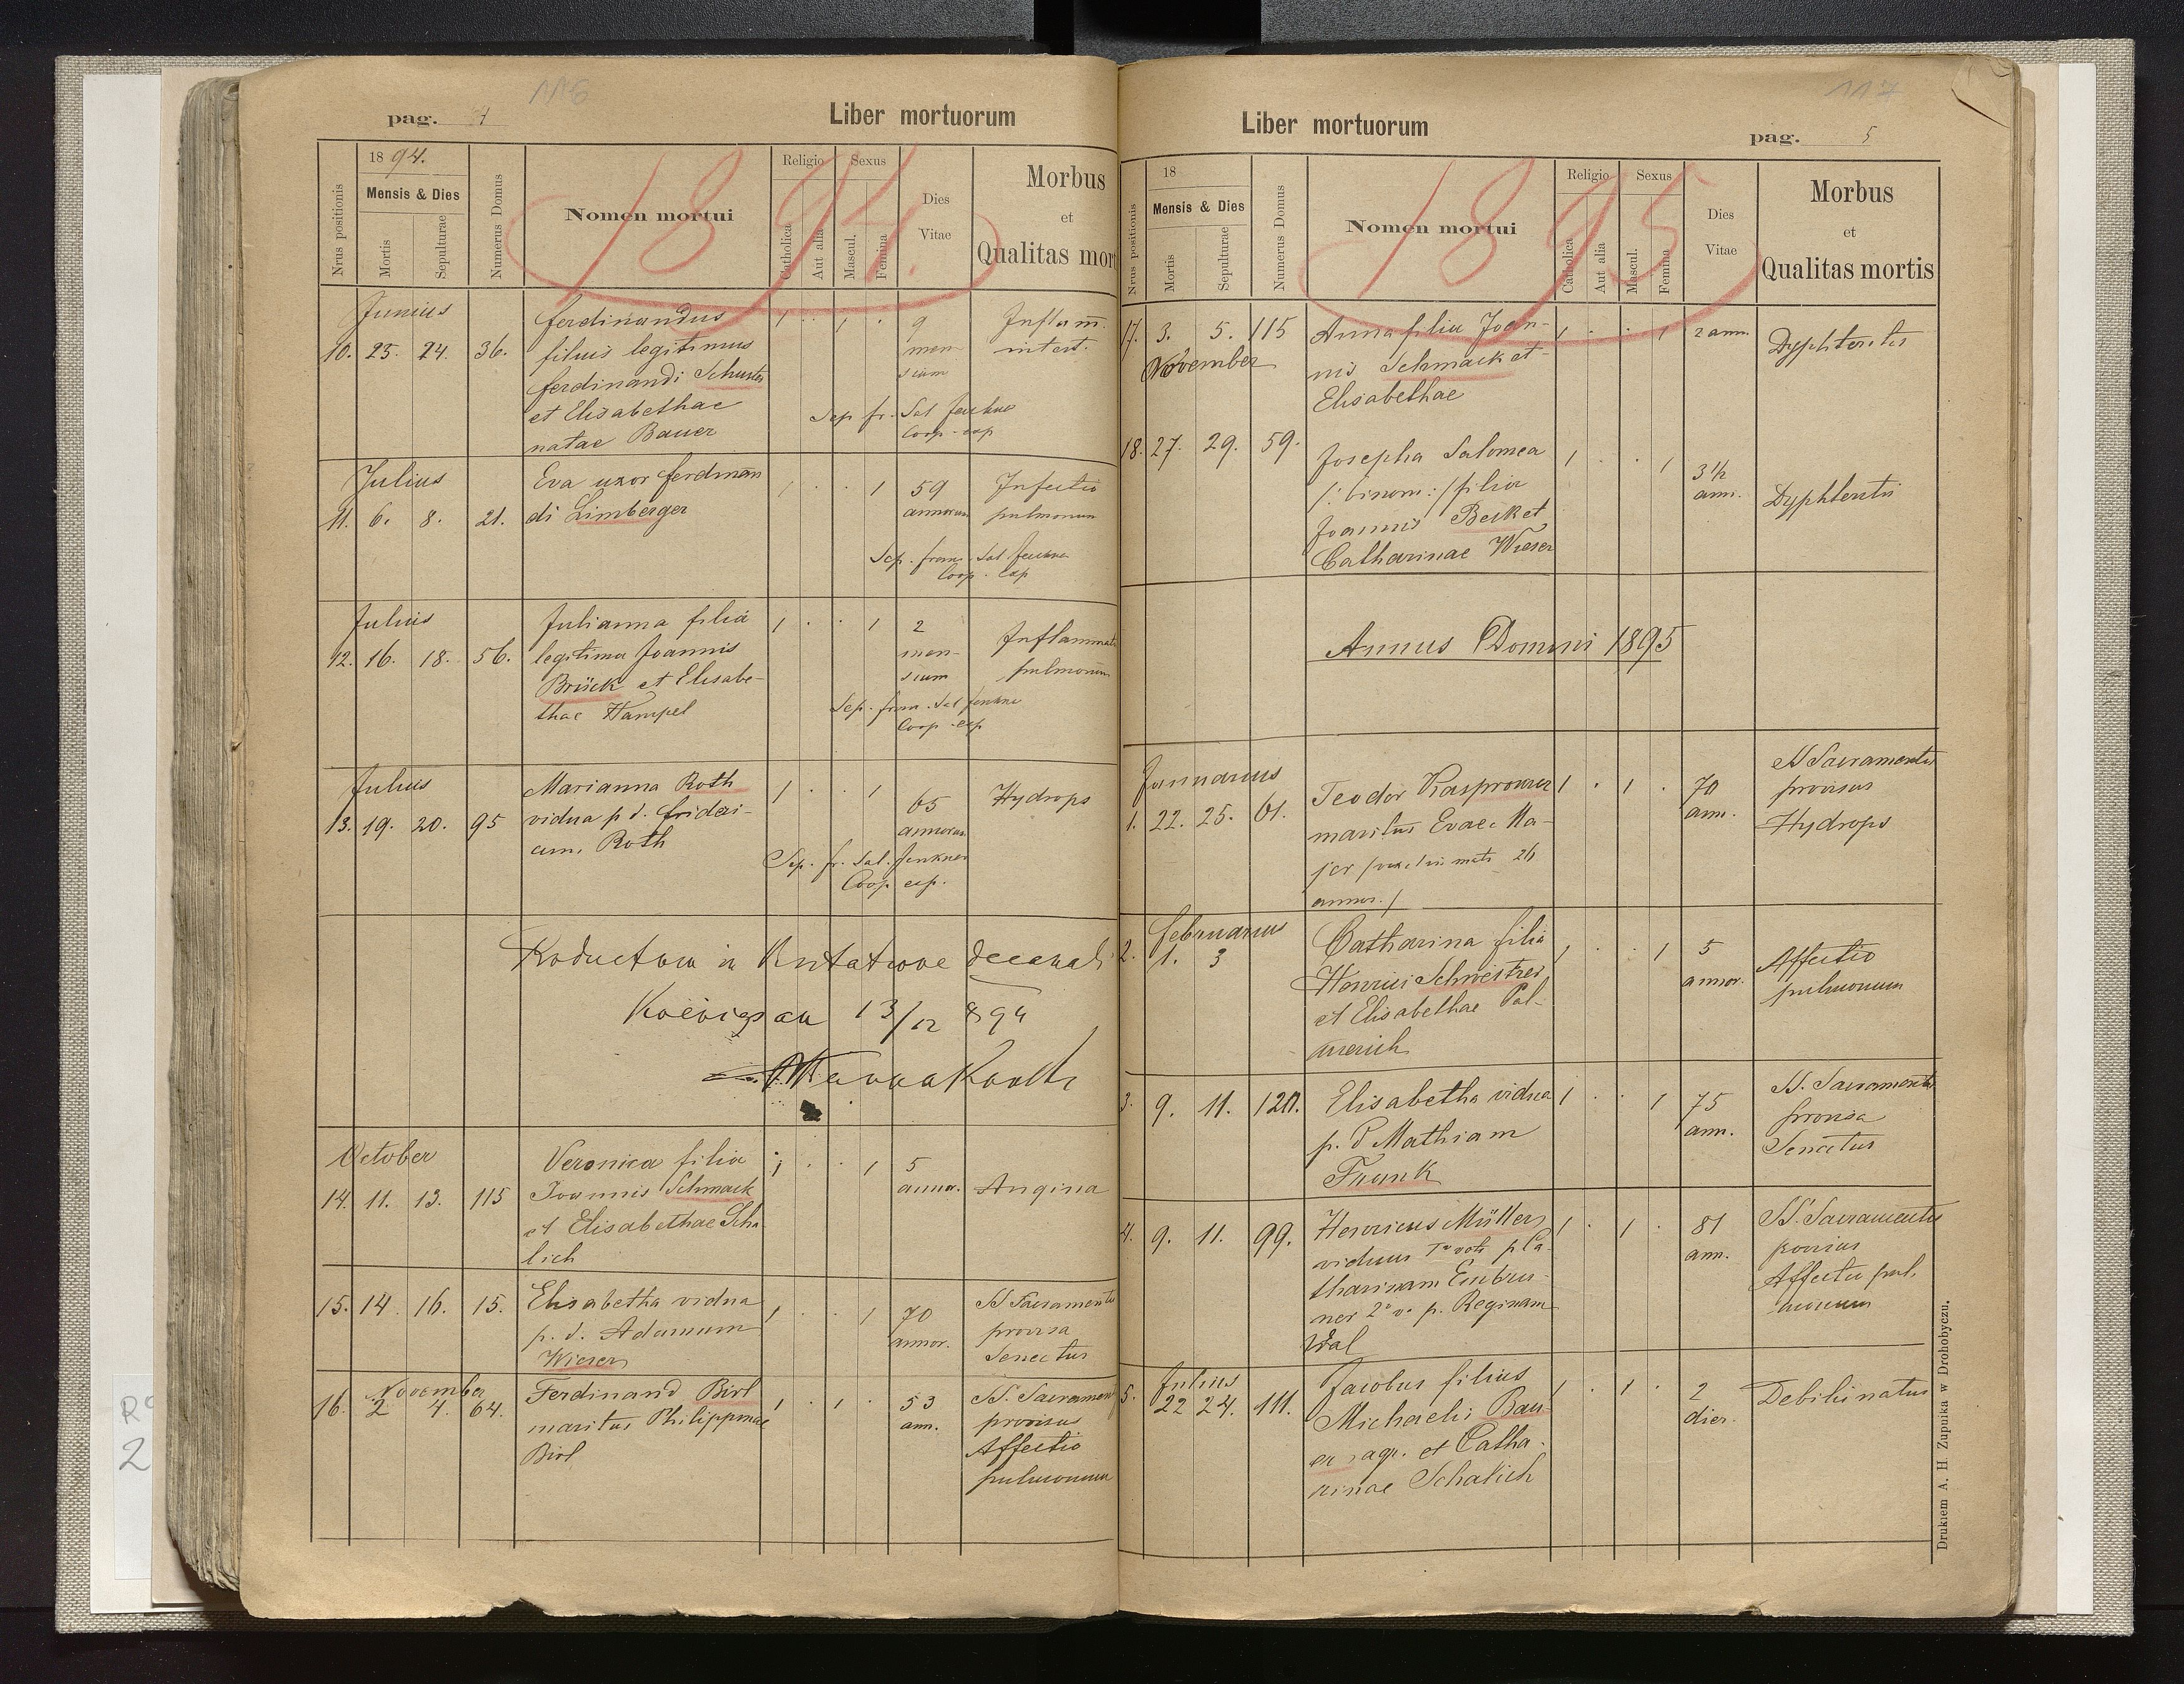 116
pag. 4
Liber mortuorum
1894.
Nrus positionis
Mensis & Dies
Mortis
Sepulturae
Numerus Domus
Nomen mortui
Religio
Catholica
Aut alia
Sexus
Mascul.
Femina
Dies
Vitae
Morbus
et
Qualitas mort
1894.
Junius
10. 23. 24. 36.
ferdinandus
filius legitimus
ferdinandi Schuster
et Elisabethae
natae Bauer
1 . 1 .
9
men
sium
Inflam.
intest.
Sep fr. Sal Jenkner
Coop. exp
Julius
11. 6. 8. 21.
Eva uxor ferdinan
di Limberger
1 . . 1
59
annorum
Infectio
pulmonum
Sep. fram. Sal Jenkner
Coop. exp
Julius
12. 16. 18. 56.
Julianna filia
legitima Joannis
Brück et Elisabe-
thae Hampel
1 . . 1
2
men-
sium
Inflammat
pulmonum
Sep. fram. Sal Jenkner
Coop. exp
Julius
13. 19. 20. 95
Marianna Roth
vidua p d. frideri-
cum Roth
1 . . 1
65
annorum
Hydrops
Sep. fr. Sal. Jenkner
Coop exp.
Koenigsau 13/12 894
October
14. 11. 13. 115
Veronica filia
Joannis Schmack
et Elisabethae Scha
lich
1 . . 1
5
annor.
Angina
15. 14. 16. 15.
Elisabetha vidua
p. d. Adamum
Wieser
1 . . 1
70
annor.
SS Sacramentis
provisa
Senectus
November
16. 2 4. 64.
Ferdinand Birl
maritus Philippinae
Birl
1 . 1 .
53
ann.
SS. Sacramen
provisus
Affectio
pulmonum
117
Liber mortuorum
pag. 5
18
Nrus positionis
Mensis & Dies
Mortis
Sepulturae
Numerus Domus
Nomen mortui
Religio
Catholica
Aut alia
Sexus
Mascul.
Femina
Dies
Vitae
Morbus
et
Qualitas mortis
1895
17. 3. 5. 115
November
Anna filia Joan-
nis Schmack et
Elisabethae
1 . . 1
2 ann.
Dyphteritis
18. 27. 29. 59.
Josepha Salomea
/: binom :/ filia
Joannis Beck et
Catharinae Wieser
1 . . 1
3½
ann.
Dyphteritis
Annus Domini 1895
Januarius
1. 22. 25. 61.
Teodor Kasprowicz
maritus Evae Ma-
jer
annor. /
1 . 1 .
70
ann.
SS Sacramentis
provisus
Hydrops
februarius
2. 1. 3
Catharina filia
Henrici Schweitzer
et Elisabethae Pol-
merich
1 . . 1
5
annor.
Affectio
pulmonum
3. 9. 11. 120.
Elisabetha vidua
p. d Mathiam
Frank
1 . . 1
75
ann.
SS. Sacramentis
provisa
Senectus
4. 9. 11. 99.
Henricus Müller
viduus 1o voti p Ca-
tharinam Embru-
ner 2o v. p. Reginam
Wal
1 . 1 .
81
ann.
SS. Sacramentis
provisus
Affectio pul.
monum
Julius
5. 22 24. 111.
Jacobus filius
Michaelis Bau-
er agr. et Catha-
rinae Schalich
1 . 1 .
2
dier.
Debilinatus
Drukiem A. H. Zupnika w Drohobyczu.